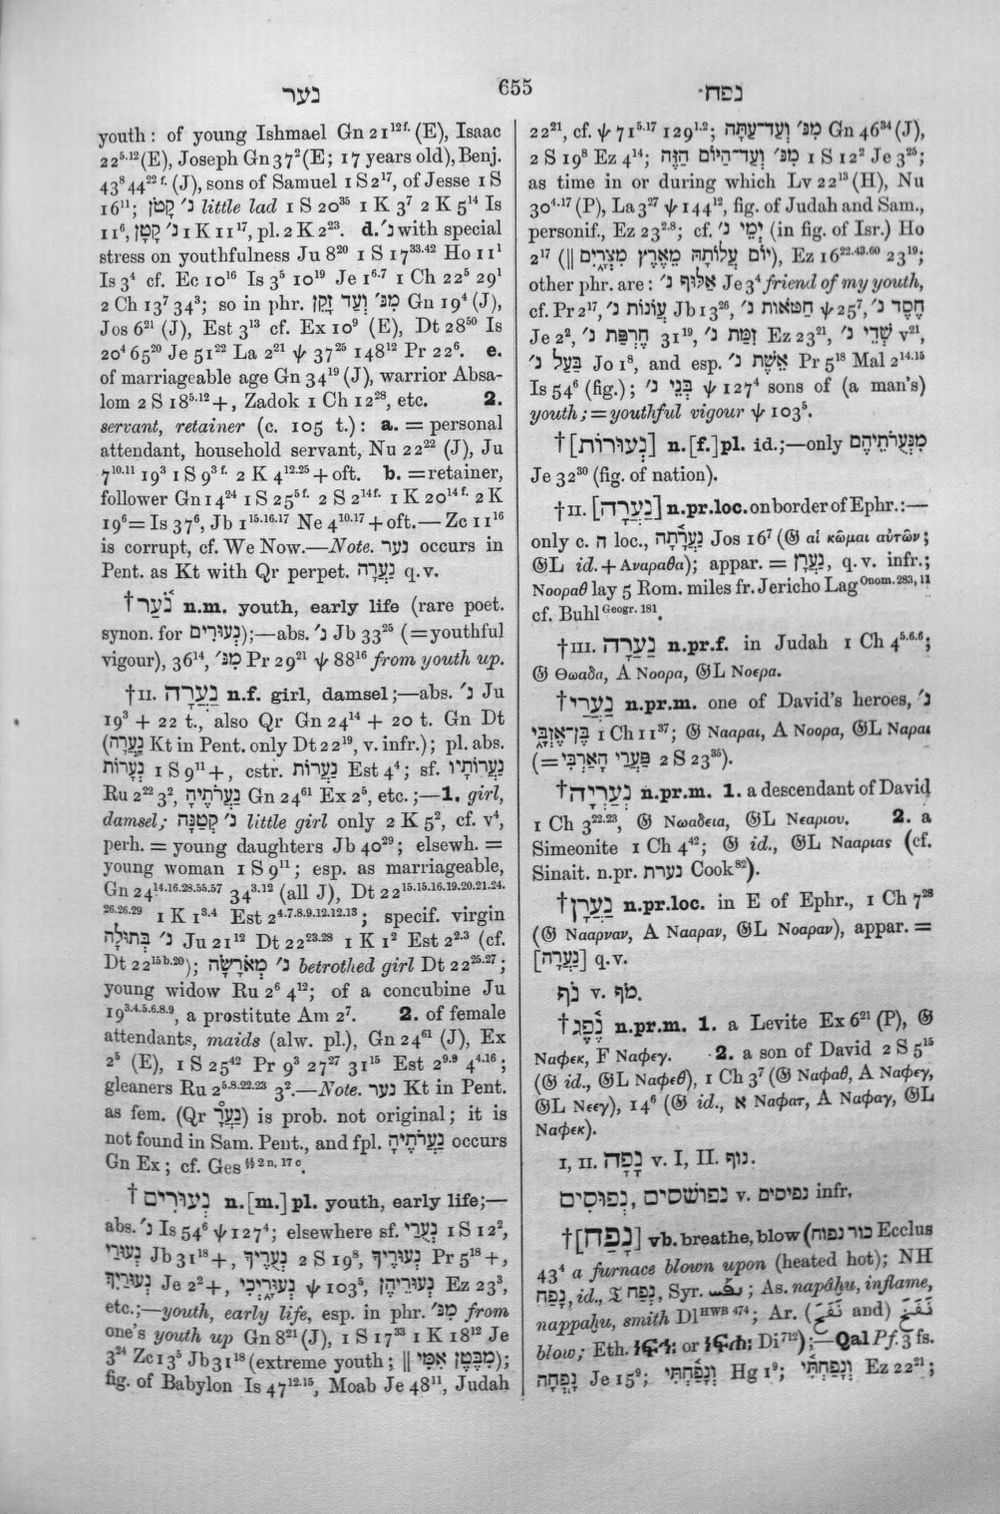 נער
655
נפח
youth: of young Ishmael Gn 21¹²ᶠ· (E), Isaac
22⁵·¹² (E), Joseph Gn 37² (E; 17 years old), Benj.
43⁸ 44²² ᶠ· (J), sons of Samuel 1 S 2¹⁷, of Jesse 1 S
16¹¹; נ׳ קָטֹן little lad 1 S 20³⁵ 1 K 3⁷ 2 K 5¹⁴ Is
11⁶, נ׳ קָטָן 1 K 11¹⁷, pl. 2 K 2²³. d. נ׳ with special
stress on youthfulness Ju 8²⁰ 1 S 17³³·⁴² Ho 11¹
Is 3⁴ cf. Ec 10¹⁶ Is 3⁵ 10¹⁹ Je 1⁶·⁷ 1 Ch 22⁵ 29¹
2 Ch 13⁷ 34³; so in phr. מִנּ׳ וְעַד זָקֵן Gn 19⁴ (J),
Jos 6²¹ (J), Est 3¹³ cf. Ex 10⁹ (E), Dt 28⁵⁰ Is
20⁴ 65²⁰ Je 51²² La 2²¹ ψ 37²⁵ 148¹² Pr 22⁶. e.
of marriageable age Gn 34¹⁹ (J), warrior Absa-
lom 2 S 18⁵·¹² +, Zadok 1 Ch 12²⁸, etc. 2.
servant, retainer (c. 105 t.): a. = personal
attendant, household servant, Nu 22²² (J), Ju
7¹⁰·¹¹ 19³ 1 S 9³ ᶠ· 2 K 4¹²·²⁵ + oft. b. = retainer,
follower Gn 14²⁴ 1 S 25⁵ ᶠ· 2 S 2¹⁴ᶠ· 1 K 20¹⁴ ᶠ· 2 K
19⁶ = Is 37⁶, Jb 1¹⁵·¹⁶·¹⁷ Ne 4¹⁰·¹⁷ + oft.—Zc 11¹⁶
is corrupt, cf. We Now.—Note. נער occurs in
Pent. as Kt with Qr perpet. נַעֲרָה q.v.
†נֹ֫עַר n.m. youth, early life (rare poet.
synon. for נְעוּרִים);—abs. נ׳ Jb 33²⁵ (= youthful
vigour), 36¹⁴, מִנּ׳ Pr 29²¹ ψ 88¹⁶ from youth up.
†II. נַעֲרָה n.f. girl, damsel;—abs. נ׳ Ju
19³ + 22 t., also Qr Gn 24¹⁴ + 20 t. Gn Dt
(נַעֲרָה Kt in Pent. only Dt 22¹⁹, v. infr.); pl. abs.
נְעָרוֹת 1 S 9¹¹ +, cstr. נַעֲרוֹת Est 4⁴; sf. נַעֲרוֹתָיו
Ru 2²² 3², נַעֲרֹתֶיהָ Gn 24⁶¹ Ex 2⁵, etc.;—1. girl,
damsel; נ׳ קְטַנָּה little girl only 2 K 5², cf. v⁴,
perh. = young daughters Jb 40²⁹; elsewh. =
young woman 1 S 9¹¹; esp. as marriageable,
Gn 24¹⁴·¹⁶·²⁸·⁵⁵·⁵⁷ 34³·¹² (all J), Dt 22¹⁵·¹⁵·¹⁶·¹⁹·²⁰·²¹·²⁴·
²⁶·²⁶·²⁹ 1 K 1³·⁴ Est 2⁴·⁷·⁸·⁹·¹²·¹²·¹³; specif. virgin
נ׳ בְתוּלָה Ju 21¹² Dt 22²³·²⁸ 1 K 1² Est 2²·³ (cf.
Dt 22¹⁵ᵇ·²⁰); נ׳ מְאֹרָשָׂה betrothed girl Dt 22²⁵·²⁷;
young widow Ru 2⁶ 4¹²; of a concubine Ju
19³·⁴·⁵·⁶·⁸·⁹, a prostitute Am 2⁷. 2. of female
attendants, maids (alw. pl.), Gn 24⁶¹ (J), Ex
2⁵ (E), 1 S 25⁴² Pr 9³ 27²⁷ 31¹⁵ Est 2⁹·⁹ 4⁴·¹⁶;
gleaners Ru 2⁵·⁸·²²·²³ 3².—Note. נער Kt in Pent.
as fem. (Qr נַעֲרָ) is prob. not original; it is
not found in Sam. Pent., and fpl. נַעֲרֹתֶיהָ occurs
Gn Ex; cf. Ges §§ ² ⁿ, ¹⁷ ᶜ.
†נְעוּרִים n.[m.] pl. youth, early life;—
abs. נ׳ Is 54⁶ ψ 127⁴; elsewhere sf. נְעֻרַי 1 S 12²,
נְעוּרַי Jb 31¹⁸ +, נְעֻרֶיךָ 2 S 19⁸, נְעוּרֶיךָ Pr 5¹⁸ +,
נְעוּרַיִךְ Je 2² +, נְעוּרָיְכִי ψ 103⁵, נְעוּרֵיהֶן Ez 23³,
etc.;—youth, early life, esp. in phr. מִנּ׳ from
one's youth up Gn 8²¹ (J), 1 S 17³³ 1 K 18¹² Je
3²⁴ Zc 13⁵ Jb 31¹⁸ (extreme youth; ‖ מִבֶּטֶן אִמִּי);
fig. of Babylon Is 47¹²·¹⁵, Moab Je 48¹¹, Judah
22²¹, cf. ψ 71⁵·¹⁷ 129¹·²; מִנּ׳ וְעַד־עַתָּה Gn 46³⁴ (J),
2 S 19⁸ Ez 4¹⁴; מִנּ׳ וְעַד־הַיּוֹם הַזֶּה 1 S 12² Je 3²⁵;
as time in or during which Lv 22¹³ (H), Nu
30⁴·¹⁷ (P), La 3²⁷ ψ 144¹², fig. of Judah and Sam.,
personif., Ez 23²·⁸; cf. יְמֵי נ׳ (in fig. of Isr.) Ho
2¹⁷ (‖ יוֹם עֲלוֹתָהּ מֵאֶרֶץ מִצְרָיִם), Ez 16²²·⁴³·⁶⁰ 23¹⁹;
other phr. are: אַלּוּף נ׳ Je 3⁴ friend of my youth,
cf. Pr 2¹⁷, עֲוֹנוֹת נ׳ Jb 13²⁶, חַטֹּאות נ׳ ψ 25⁷, חֶסֶד נ׳
Je 2², חֶרְפַּת נ׳ 31¹⁹, זִמַּת נ׳ Ez 23²¹, שְׁדֵי נ׳ v²¹,
בַּעַל נ׳ Jo 1⁸, and esp. אֵשֶׁת נ׳ Pr 5¹⁸ Mal 2¹⁴·¹⁵
Is 54⁶ (fig.); בְּנֵי נ׳ ψ 127⁴ sons of (a man's)
youth; = youthful vigour ψ 103⁵.
†[נְעוּרוֹת] n.[f.] pl. id.;—only מִנְּעֻרֹתֵיהֶם
Je 32³⁰ (fig. of nation).
†II. [נַעֲרָה] n.pr.loc. on border of Ephr.:—
only c. ה loc., נַעֲרָ֫תָה Jos 16⁷ (𝔊 αἱ κῶμαι αὐτῶν;
𝔊L id. + Αναραθα); appar. = נַעֲרָן, q.v. infr.;
Νοοραθ lay 5 Rom. miles fr. Jericho Lag Onom. 283, 11
cf. Buhl Geogr. 181.
†III. נַעֲרָה n.pr.f. in Judah 1 Ch 4⁵·⁶·⁶;
𝔊 Θωαδα, A Νοορα, 𝔊L Νοερα.
†נַעֲרַי n.pr.m. one of David's heroes, נ׳
בֶּן־אֶזְבָּי 1 Ch 11³⁷; 𝔊 Νααραι, A Νοορα, 𝔊L Ναραι
(= פַּעֲרַי הָאַרְבִּי 2 S 23³⁵).
†נְעַרְיָה n.pr.m. 1. a descendant of David
1 Ch 3²²·²³, 𝔊 Νωαδεια, 𝔊L Νεαριου. 2. a
Simeonite 1 Ch 4⁴²; 𝔊 id., 𝔊L Νααριας (cf.
Sinait. n.pr. נערת Cook⁸²).
†נַעֲרָן n.pr.loc. in E of Ephr., 1 Ch 7²⁸
(𝔊 Νααρναν, A Νααραν, 𝔊L Νοαραν), appar. =
[נַעֲרָה] q.v.
נֹף v. מֹף.
†נֶ֫פֶג n.pr.m. 1. a Levite Ex 6²¹ (P), 𝔊
Ναφεκ, F Ναφεγ. 2. a son of David 2 S 5¹⁵
(𝔊 id., 𝔊L Ναφεθ), 1 Ch 3⁷ (𝔊 Ναφαθ, A Ναφεγ,
𝔊L Νεεγ), 14⁶ (𝔊 id., א Ναφατ, A Ναφαγ, 𝔊L
Ναφεκ).
I, II. נָפָה v. I, II. נוף.
נְפוּשְׁסִים, נְפוּסִים v. נפיסים infr.
†[נָפַח] vb. breathe, blow (כור נפוח Ecclus
43⁴ a furnace blown upon (heated hot); NH
נָפַח, id., 𝔗 נְפַח, Syr. ܢܦܚ; As. napâḫu, inflame,
nappaḫu, smith Dl HWB 474; Ar. (نَفَخَ and) نَفَخَ
blow; Eth. ነፍኀ: or ነፍሐ: Di⁷¹²);—Qal Pf. 3 fs.
נָפְחָה Je 15⁹; וְנָפַחְתִּי Hg 1⁹; וְנָפַחְתִּי Ez 22²¹;